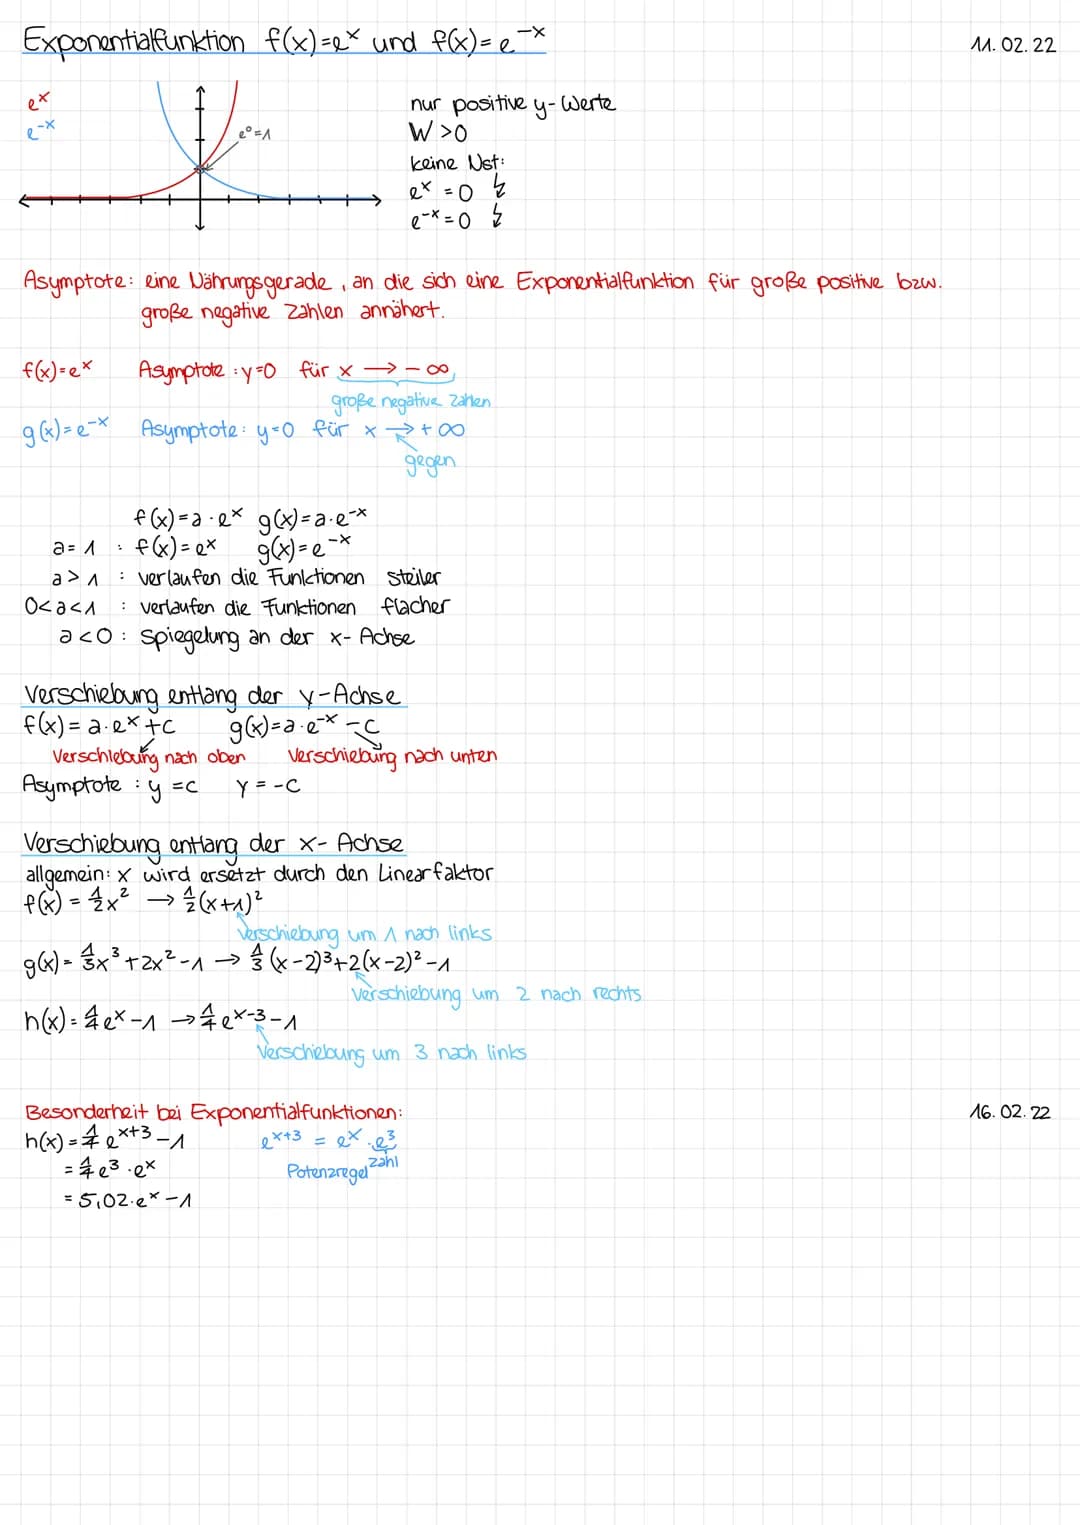 Exponentialfunktion f(x)=eˣ und f(x)=e⁻ˣ
11.02.22
eˣ
e⁻ˣ
e⁰=1
nur positive y-Werte
W >0
keine Nst:
eˣ = 0 ↯
e⁻ˣ = 0 ↯
Asymptote: eine Nährungsgerade, an die sich eine Exponentialfunktion für große positive bzw.
große negative Zahlen annähert.
f(x)=eˣ Asymptote: y=0 für x → -∞
große negative Zahlen
g(x)=e⁻ˣ Asymptote: y=0 für x → +∞
gegen
f(x)=a·eˣ g(x)=a·e⁻ˣ
a=1 : f(x)=eˣ g(x)=e⁻ˣ
a>1 : verlaufen die Funktionen steiler
0<a<1 : verlaufen die Funktionen flacher
a<0 : Spiegelung an der x-Achse
Verschiebung entlang der y-Achse
f(x)=a·eˣ+c g(x)=a·e⁻ˣ-c
Verschiebung nach oben Verschiebung nach unten
Asymptote : y=c y=-c
Verschiebung entlang der x-Achse
allgemein: x wird ersetzt durch den Linearfaktor
f(x) = ½x² → ½(x+1)²
Verschiebung um 1 nach links
g(x) = ⅓x³+2x²-1 → ⅓(x-2)³+2(x-2)²-1
Verschiebung um 2 nach rechts
h(x) = ¼eˣ-1 → ¼eˣ⁻³-1
Verschiebung um 3 nach links
Besonderheit bei Exponentialfunktionen:
16.02.22
h(x) = ¼eˣ⁺³-1 eˣ⁺³ = eˣ·e³
Zahl
= ¼e³·eˣ Potenzregel
= 5,02·eˣ-1